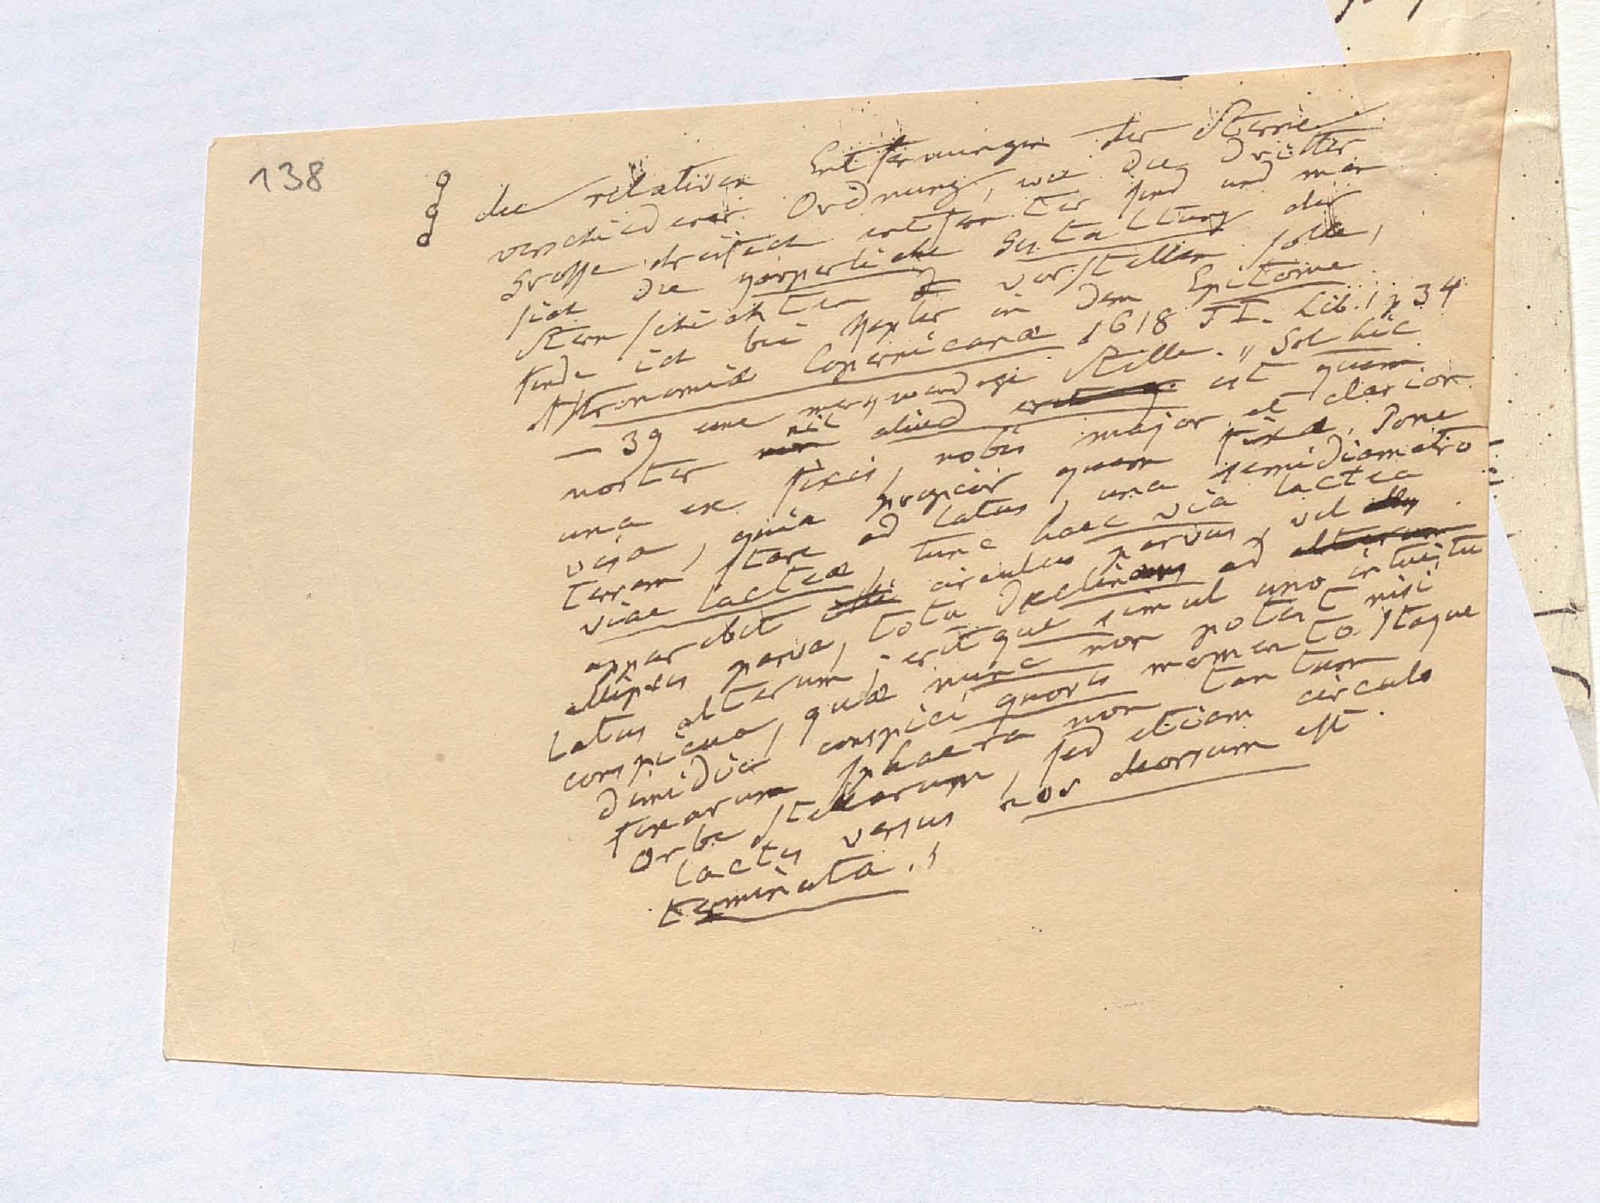 138
die relativen Entfernungen der Sterne
verschiedener Ordnung, wie die dritter
Grosse dreifach entfernter sind und man
sich die körperliche Gestaltung der
Sternschichten vorstellen solle,
finde ich bei Kepler in dem Epitome
Astronomiæ Copernicanæ 1618 T I. Lib. 1 p 34
— 39 eine merkwürdige Stelle. „Sol hic
noster nil aliud est quam
una ex fixis, nobis major et clarior
visa, quia propior quam fixæ. Pone
terram stare ad latus, una semidiametro
viae lacteæ, tunc haec via lactea
apparebit circulus parvus, vel
ellipsis parva, tota declinans ad
latus alterum; eritque simul uno intuitu
conspicua, quæ nunc non potest nisi
dimidia conspici quovis momento. Itaque
fixarum sphaera non tantum
orbe stellarum, sed etiam circulo
lactis versus nos deorsum est
terminata."